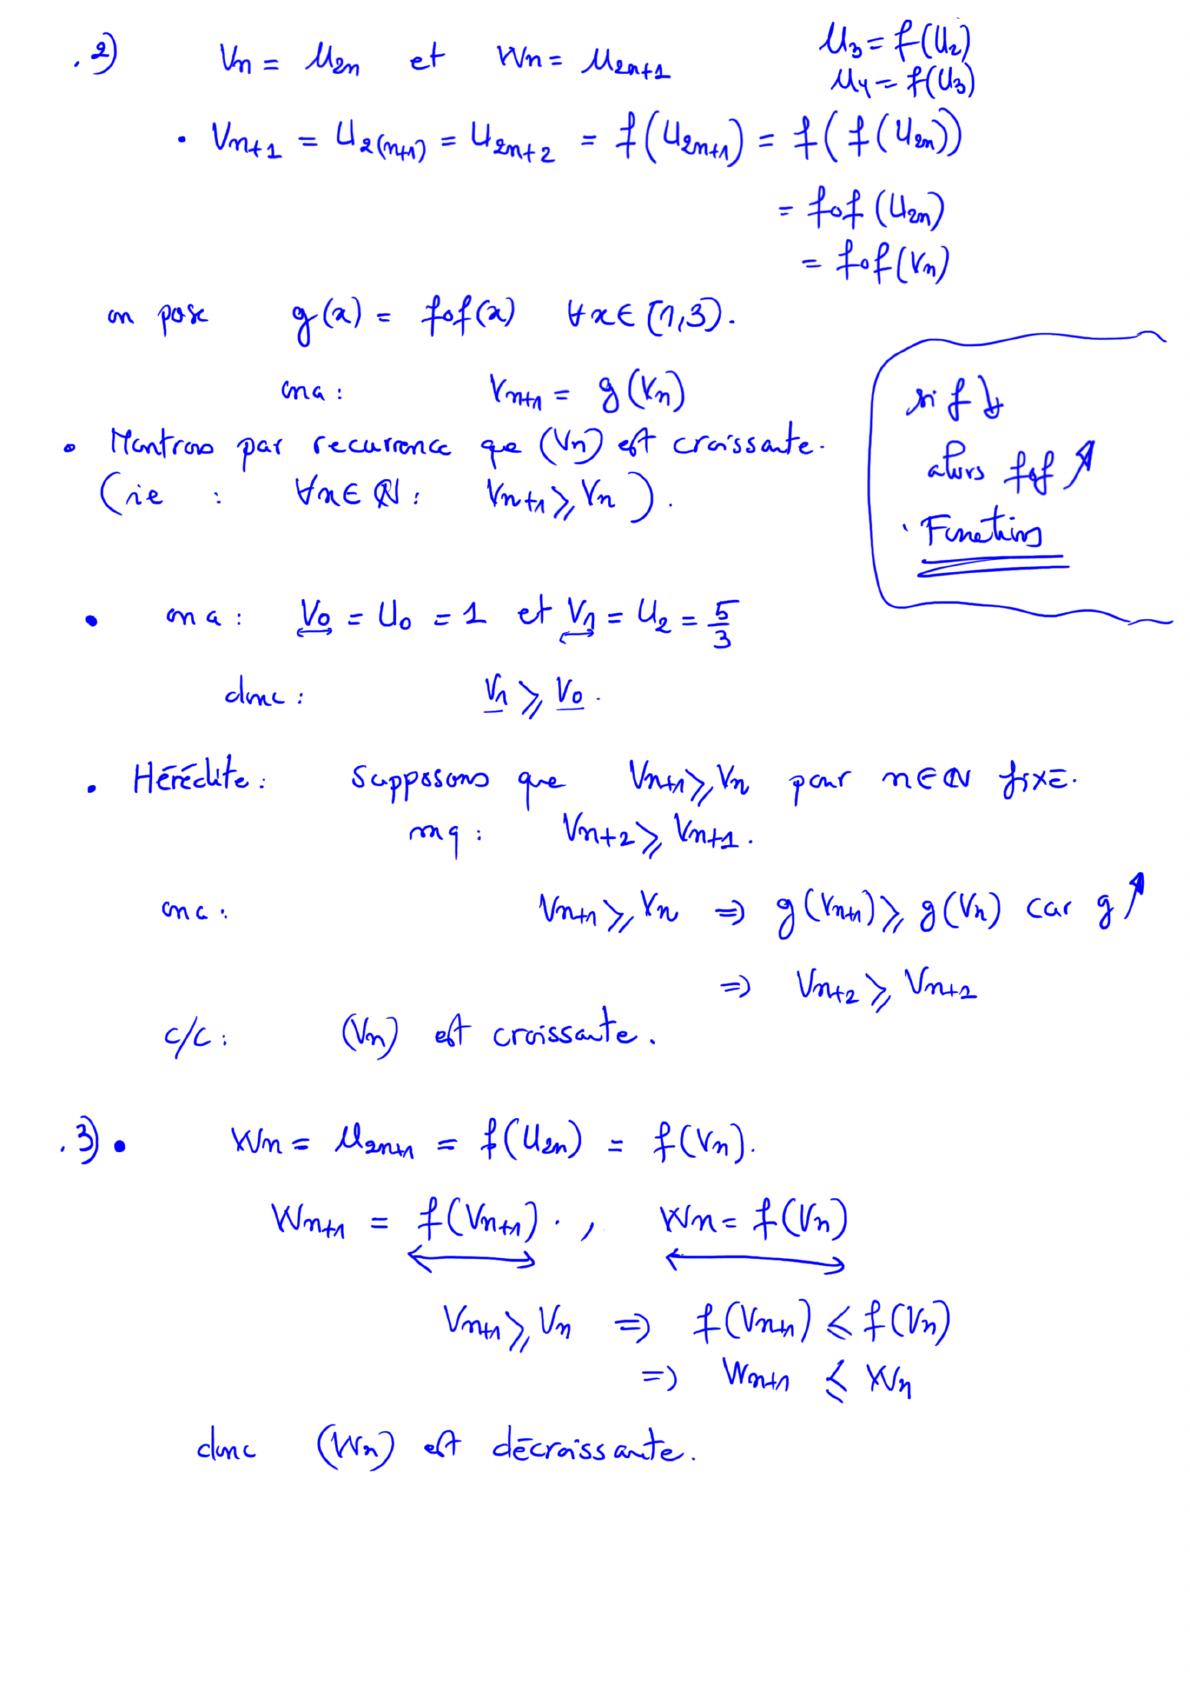 .2) Vn = U2n et Wn = U2n+1
U3 = f(U2)
U4 = f(U3)
• Vn+1 = U2(n+1) = U2n+2 = f(U2n+1) = f(f(U2n))
= fof(U2n)
= fof(Vn)
on pose g(x) = fof(x) ∀x∈[1,3].
ona : Vn+1 = g(Vn)
• Montrons par recurrence que (Vn) est croissante.
(ie : ∀n∈ℕ : Vn+1 ⩾ Vn).
si f ↘
alors fof ↗
• Functions
• ona : V0 = U0 = 1 et V1 = U2 = 5/3
donc : V1 ⩾ V0.
• Hérédite : Supposons que Vn+1 ⩾ Vn pour n∈ℕ fixé.
mq : Vn+2 ⩾ Vn+1.
ona : Vn+1 ⩾ Vn ⇒ g(Vn+1) ⩾ g(Vn) car g ↗
⇒ Vn+2 ⩾ Vn+1
c/c : (Vn) est croissante.
.3) • Wn = U2n+1 = f(U2n) = f(Vn).
Wn+1 = f(Vn+1). , Wn = f(Vn)
Vn+1 ⩾ Vn ⇒ f(Vn+1) ⩽ f(Vn)
⇒ Wn+1 ⩽ Wn
donc (Wn) est décroissante.